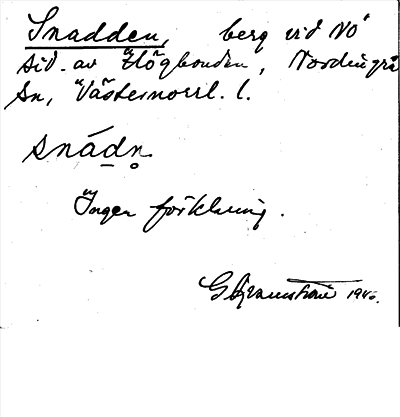 Snadden, berg vid NÖ
sid. av Högbonden, Nordingrå
sn, Västernorrl. l.
snádn̥
Ingen förklaring.
1946.